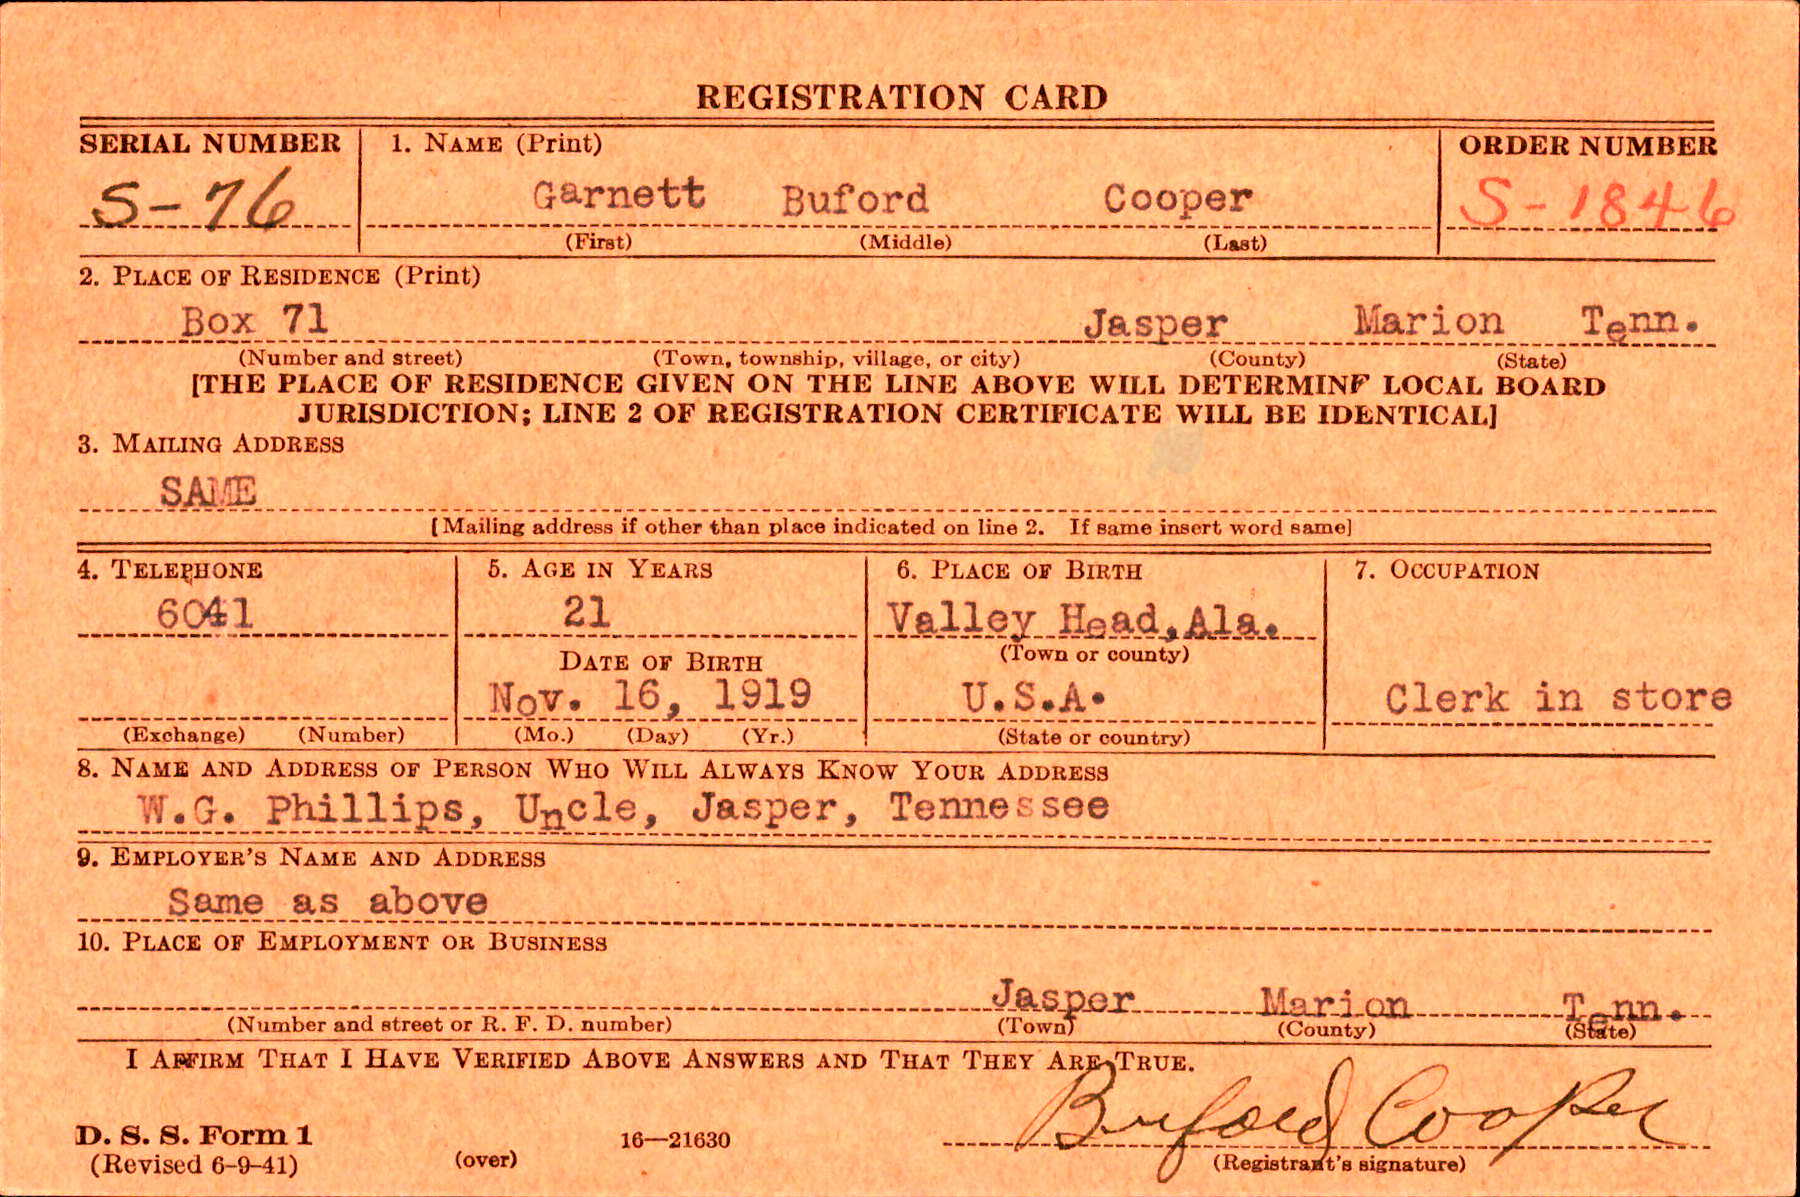 REGISTRATION CARD
SERIAL NUMBER 1. NAME (Print) ORDER NUMBER
S-76 Garnett Buford Cooper S-1846
(First) (Middle) (Last)
2. PLACE OF RESIDENCE (Print)
Box 71 Jasper Marion Tenn.
(Number and street) (Town, township, village, or city) (County) (State)
[THE PLACE OF RESIDENCE GIVEN ON THE LINE ABOVE WILL DETERMINE LOCAL BOARD
JURISDICTION; LINE 2 OF REGISTRATION CERTIFICATE WILL BE IDENTICAL]
3. MAILING ADDRESS
SAME
[Mailing address if other than place indicated on line 2. If same insert word same]
4. TELEPHONE 5. AGE IN YEARS 6. PLACE OF BIRTH 7. OCCUPATION
6041 21 Valley Head, Ala.
(Town or county)
DATE OF BIRTH
Nov. 16, 1919 U.S.A. Clerk in store
(Exchange) (Number) (Mo.) (Day) (Yr.) (State or country)
8. NAME AND ADDRESS OF PERSON WHO WILL ALWAYS KNOW YOUR ADDRESS
W.G. Phillips, Uncle, Jasper, Tennessee
9. EMPLOYER'S NAME AND ADDRESS
Same as above
10. PLACE OF EMPLOYMENT OR BUSINESS
Jasper Marion Tenn.
(Number and street or R. F. D. number) (Town) (County) (State)
I AFFIRM THAT I HAVE VERIFIED ABOVE ANSWERS AND THAT THEY ARE TRUE.
Buford Cooper
D. S. S. Form 1
(Revised 6-9-41) (over) 16—21630 (Registrant's signature)